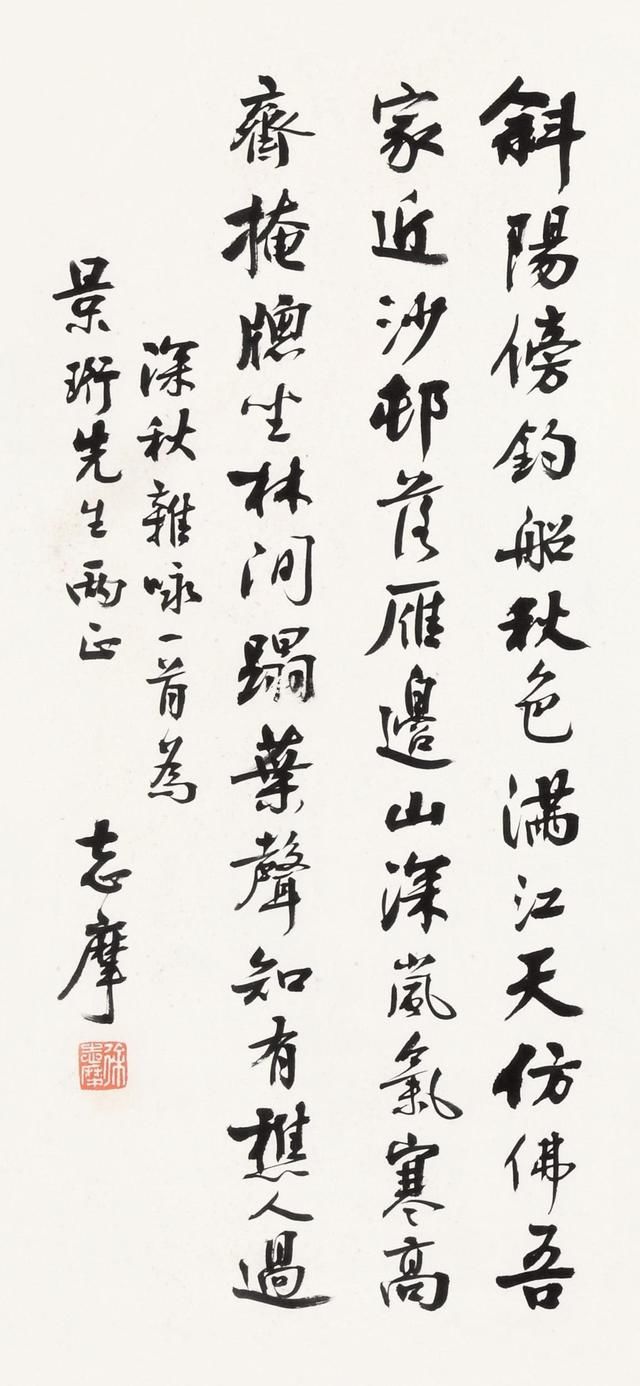 斜陽傍釣船秋色滿江天仿佛吾
家近沙邨落雁邊山深嵐氣寒高
齊掩牕坐林間蹋葉聲知有樵人過
深秋雜咏一首為
景珩先生兩正
志摩
徐志摩